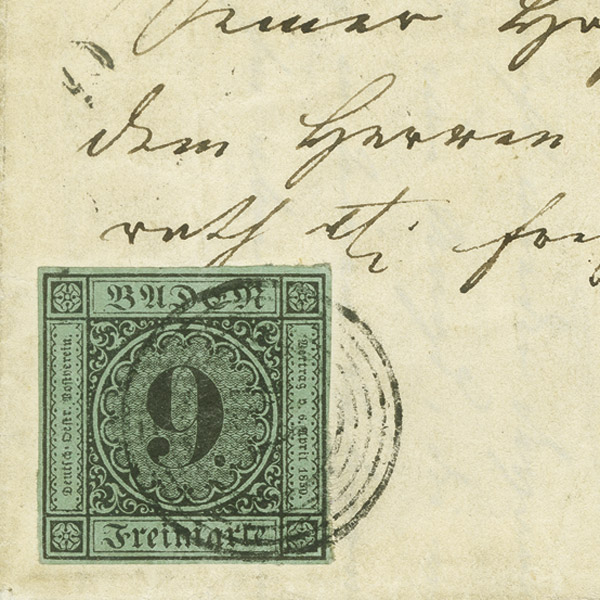 Seiner Ho
dem Herren
rath
BADEN
Deutsch-Oestr. Postverein.
9.
Vertrag v. 6. April 1850.
Freimarke